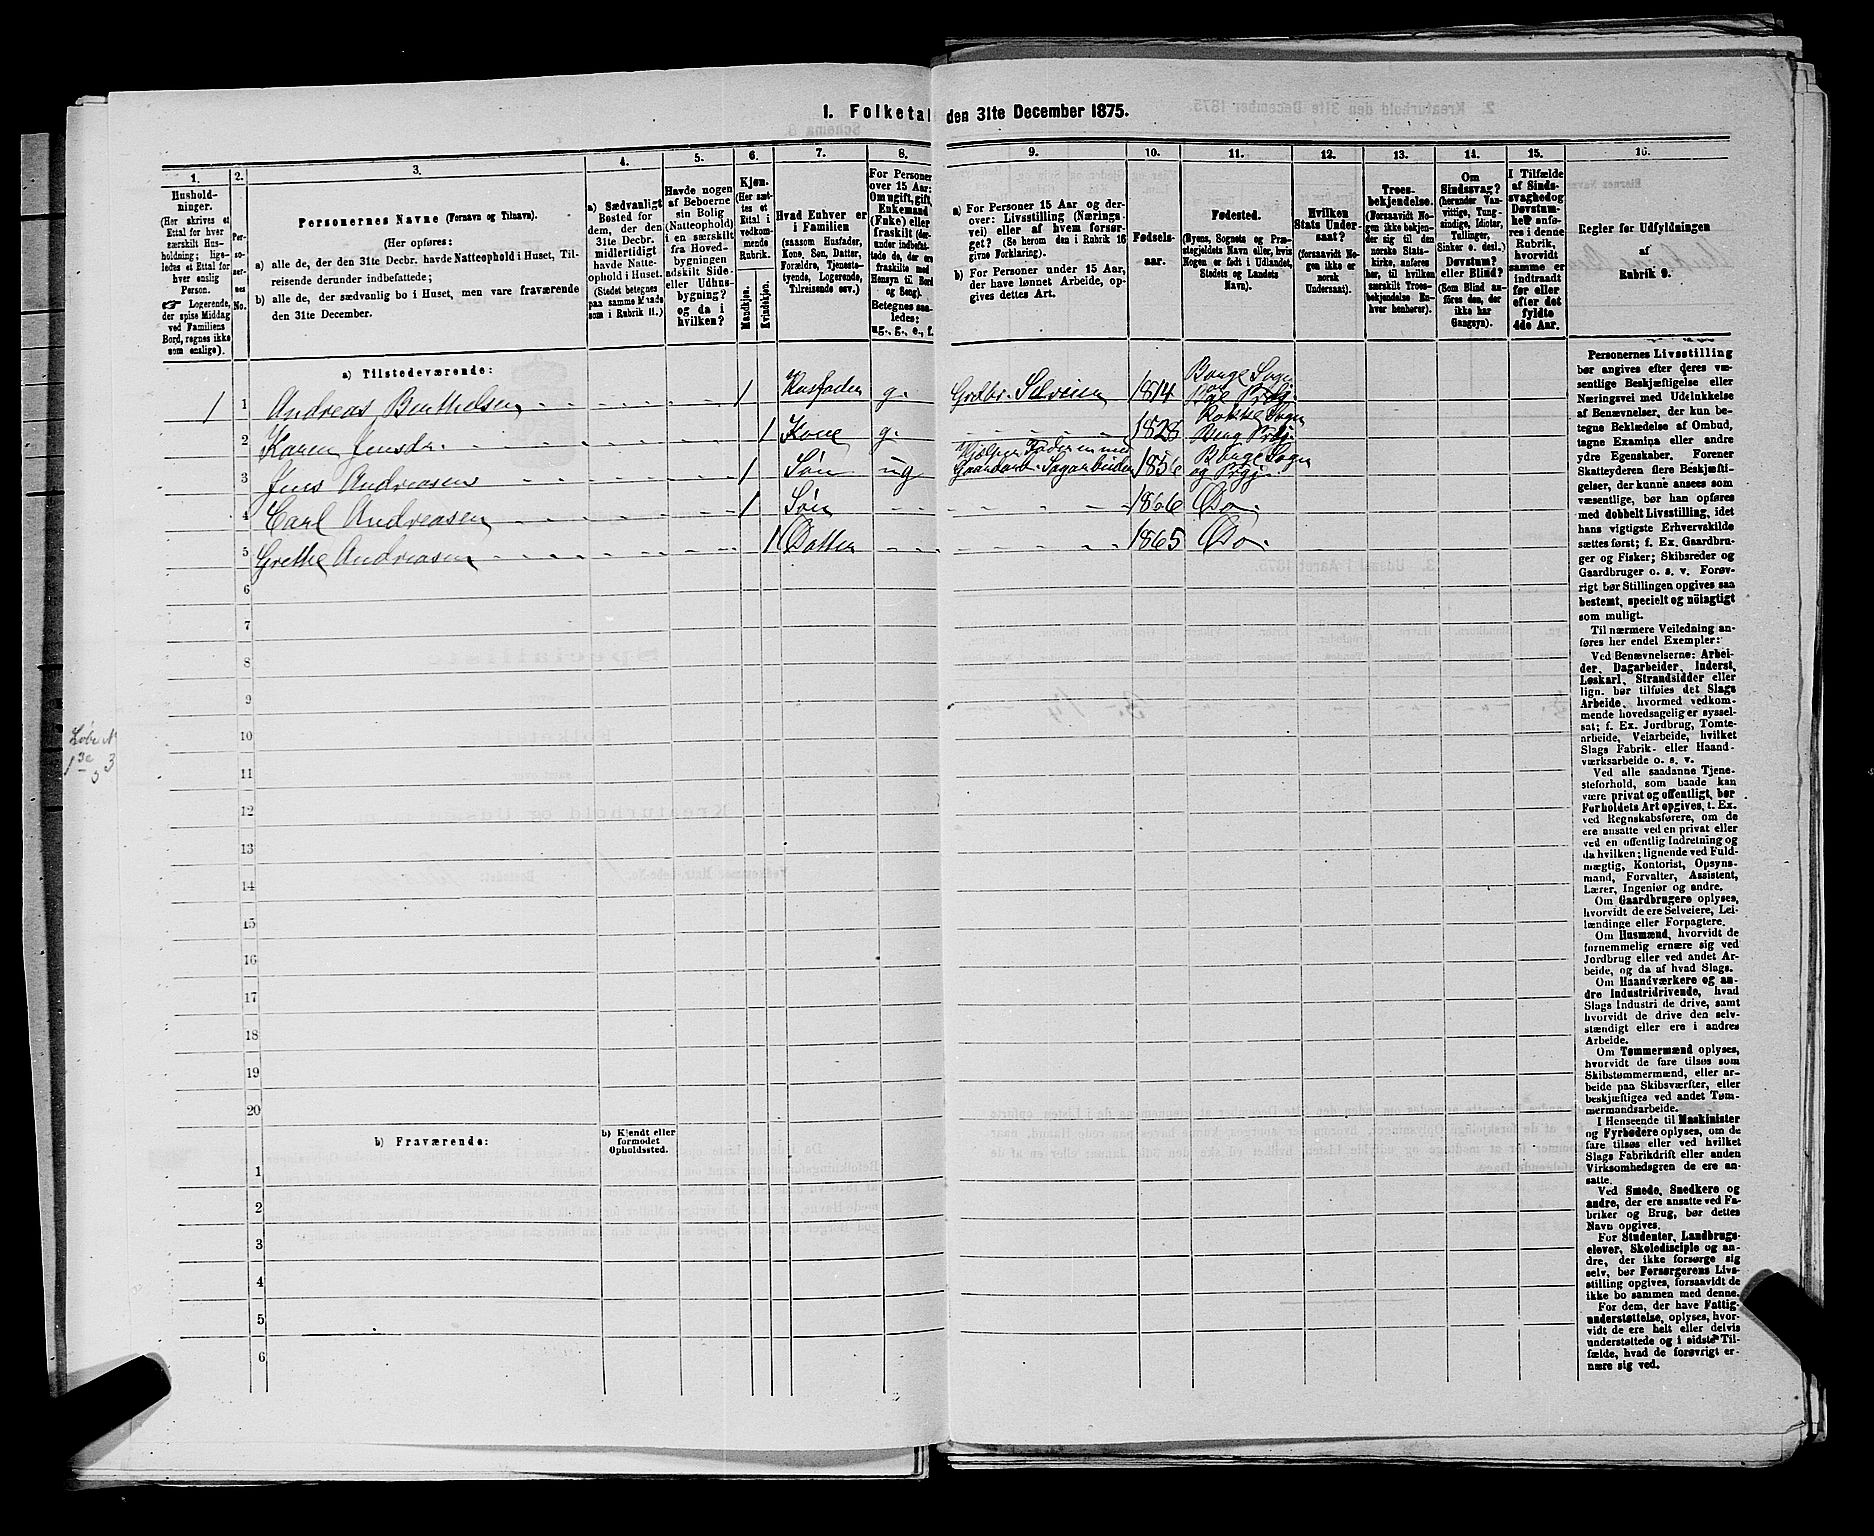 I. Folketal den 31te December 1875.
1.
Hushold-
ninger.
(Her skrives et
Ettal for hver
særskilt Hus-
holdning; lige-
ledes et Ettal for
hver enslig
Person.
Logerende,
der spise Middag
ved Familiens
Bord, regnes ikke
som enslige).
2.
Per-
soner-
nes
No.
3.
Personernes Navne (Fornavn og Tilnavn).
(Her opføres:
a) alle de, der den 31te Decbr. havde Natteophold i Huset, Til-
reisende derunder indbefattede;
b) alle de, der sædvanlig bo i Huset, men vare fraværende
den 31te December.
4.
a) Sædvanligt
Bosted for
dem, der den
31te Decbr.
midlertidigt
havde Natte-
ophold i Huset.
(Stedet betegnes
paa samme Maade
som i Rubrik 11.)
5.
Havde nogen
af Beboerne
sin Bolig
(Natteophold)
i en særskilt
fra Hoved-
bygningen
adskilt Side-
eller Udhus-
bygning?
og da i
hvilken?
6.
Kjøn.
(Her sæt-
tes et
Ettal i
vedkom-
mende
Rubrik.
Mandkjøn.
Kvindekjøn.
7.
Hvad Enhver er
i Familien
(saasom Husfader,
Kone, Søn, Datter,
Forældre, Tjeneste-
tyende, Logerende,
Tilreisende osv.)
8.
For Personer
over 15 Aar:
Om ugift, gift,
Enkemand
(Enke) eller
fraskilt (der-
under indbefat-
tede de, der ere
fraskilte med
Hensyn til Bord
og Seng).
Betegnes saa-
ledes:
ug., g., e., f.
9.
a) For Personer 15 Aar og der-
over: Livsstilling (Nærings-
vei) eller af hvem forsør-
get? (Se herom den i Rubrik 16
givne Forklaring).
b) For Personer under 15 Aar,
der have lønnet Arbeide, op-
gives dettes Art.
10.
Fødsels-
aar.
11.
Fødested.
(Byens, Sognets og Præ-
stegjeldets Navn eller, hvis
Nogen er født i Udlandet,
Stedets og Landets
Navn).
12.
Hvilken
Stats Under-
saat?
(forsaavidt No-
gen ikke er
norsk
Undersaat).
13.
Troes-
bekjendelse.
(Forsaavidt No-
gen ikke bekjen-
der sig til den
norske Stats-
kirke, anføres
her, til hvilken
særskilt Troes-
bekjendelse En-
hver henhører).
14.
Om
Sindssvag?
(herunder Van-
vittige, Tung-
sindige, Idioter,
Tullinger,
Sinker o. desl.)
Døvstum?
eller Blind?
(Som Blind an-
føres den, der
ikke har
Gangsyn).
15.
I Tilfælde
af Sinds-
svaghed og
Døvstum-
hed anfø-
res i denne
Rubrik,
hvorvidt
samme er
indtraadt
før eller
efter det
fyldte
4de Aar.
16.
Regler for Udfyldningen
af
Rubrik 9.
a) Tilstedeværende:
1 1 Andreas Berthelsen 1 Husfader g. Grdbr. Selveier 1814 Borge Sogn og Prgj.
2 Karen Jensdr. 1 Kone g. 1828 Rokke Sogn Berg Prgj.
3 Jens Andreasen 1 Søn ug Hjælper Faderen med Gaardarb. Sagarbeider 1856 Borge Sogn og Prgj.
4 Carl Andreasen 1 Søn 1866 Do.
5 Grethe Andreasen 1 Datter 1865 Do.
6
7
8
9
10
11
12
13
14
15
16
17
18
19
20
b) Fraværende:
b) Kjendt eller
formodet
Opholdssted.
1
2
3
4
5
6
Personernes Livsstilling
bør angives efter deres væ-
sentlige Beskjæftigelse eller
Næringsvei med Udelukkelse
af Benævnelser, der kun be-
tegne Beklædelse af Ombud,
tagne Examina eller andre
ydre Egenskaber. Forener
Skatteyderen flere Beskjæfti-
gelser, der kunne ansees som
væsentlige, bør han opføres
med dobbelt Livsstilling, idet
hans vigtigste Erhvervskilde
sættes først; f. Ex. Gaardbru-
ger og Fisker; Skibsreder og
Gaardbruger o. s. v. Forøv-
rigt bør Stillingen opgives saa
bestemt, specielt og nöiagtigt
som muligt.
Til nærmere Veiledning an-
føres her endel Exempler:
Ved Benævnelserne: Arbei-
der, Dagarbeider, Inderst,
Løskarl, Strandsidder eller
lign. bør tilføies det Slags
Arbeide, hvormed vedkom-
mende hovedsagelig er syssel-
sat; f. Ex. Jordbrug, Tomte-
arbeide, Veiarbeide, hvilket
Slags Fabrik- eller Haand-
værksarbeide o. s. v.
Ved alle saadanne Tjene-
steforhold, som baade kan
være privat og offentligt, bør
Forholdets Art opgives, t. Ex.
ved Regnskabsførere, om de
ere ansatte ved en privat eller
ved en offentlig Indretning og
da hvilken; lignende ved Fuld-
mægtig, Kontorist, Opsyns-
mand, Forvalter, Assistent,
Lærer, Ingeniør og andre.
Om Gaardbrugere oplyses,
hvorvidt de ere Selveiere, Lei-
lændinge eller Forpagtere.
Om Husmænd, hvorvidt de
fornemmelig ernære sig ved
Jordbrug eller ved andet Ar-
beide, og da af hvad Slags.
Om Haandværkere og an-
dre Industridrivende, hvad
Slags Industri de drive, samt
hvorvidt de drive den selv-
stændigt eller ere i andres
Arbeide.
Om Tømmermænd oplyses,
hvorvidt de fare tilsøs som
Skibstømmermænd, eller ar-
beide paa Skibsværfter, eller
beskjæftiges ved andet Tøm-
mermandsarbeide.
I Henseende til Maskinister
og Fyrbødere oplyses, om de
fare tilsøs eller ved hvilket
Slags Fabrikdrift eller anden
Virksomhedsgren de ere an-
satte.
Ved Smede, Snedkere og
andre, der ere ansatte ved Fa-
briker og Brug, bør dettes
Navn opgives.
For Studenter, Landbrugs-
elever, Skoledisciple og an-
dre, der ikke forsørge sig
selv, bør Forsørgerens Livs-
stilling opgives, forsaavidt de
ikke bo sammen med denne.
For dem, der have Fattig-
understøttelse, oplyses, hvor-
vidt de ere helt eller delvis
understøttede og i sidste Til-
fælde, hvad de forøvrigt er-
nære sig ved.